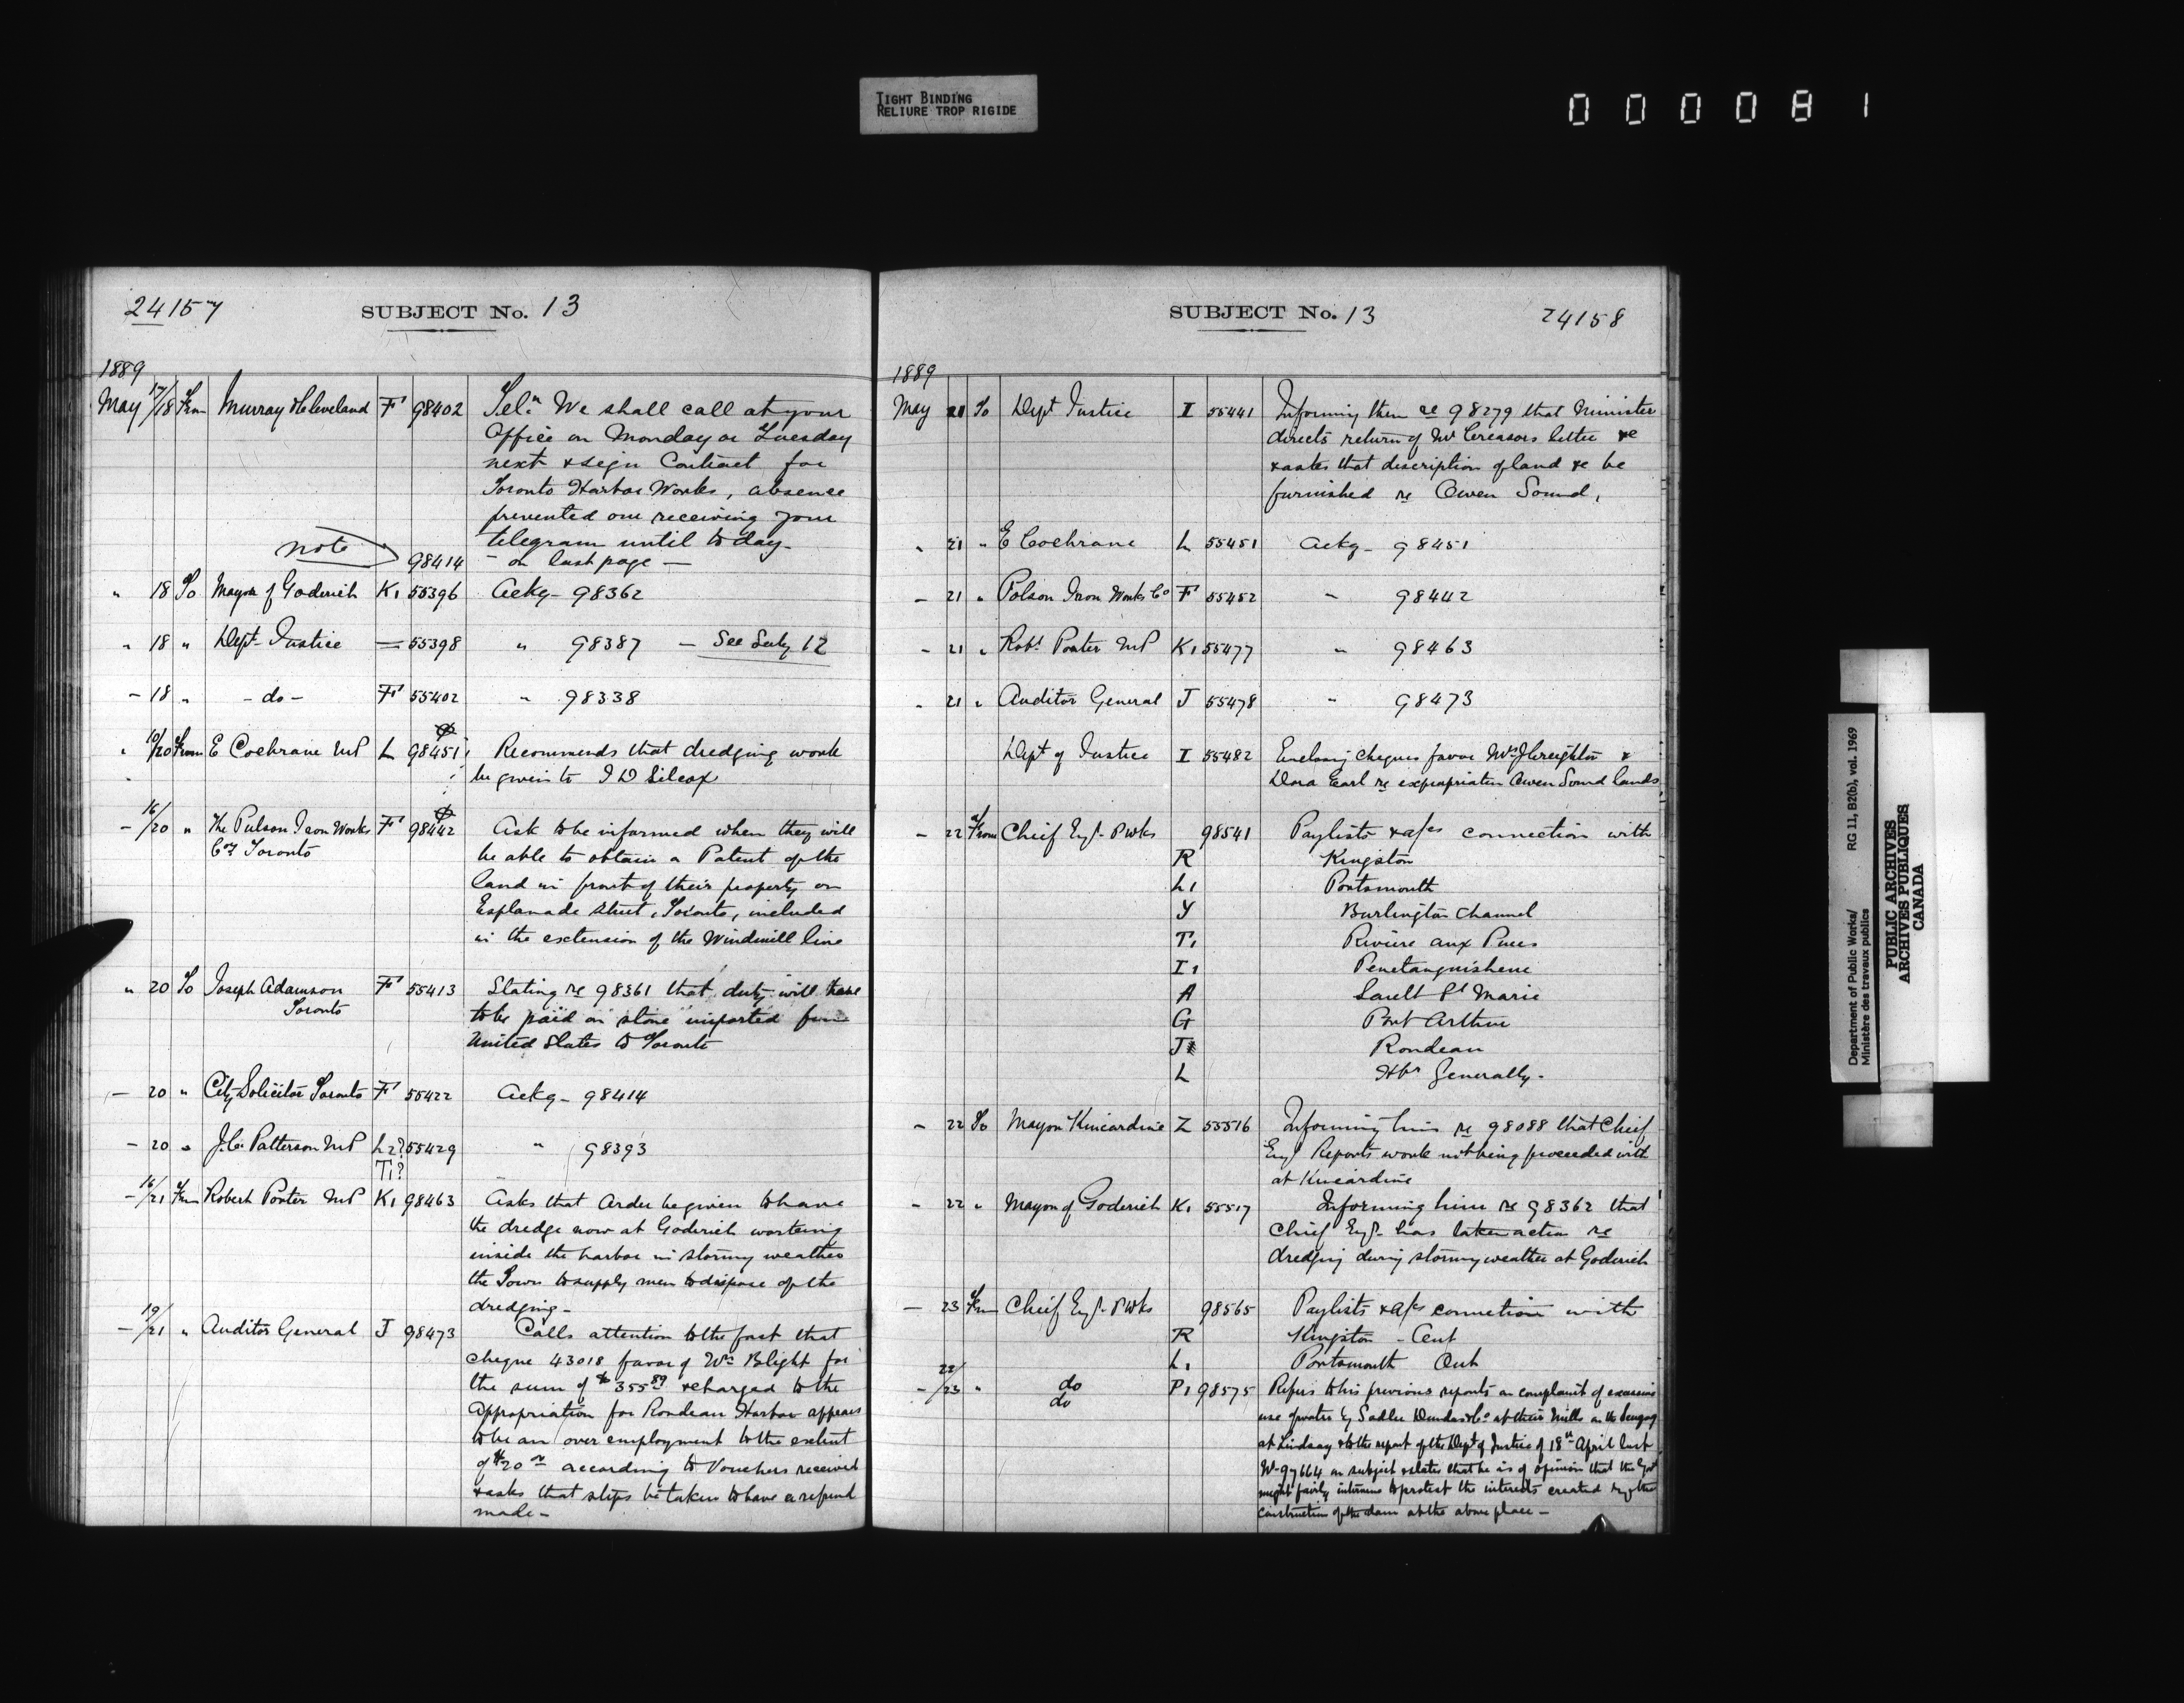 TIGHT BINDING
RELIURE TROP RIGIDE
000081
24157
SUBJECT No. 13
1889
May 17/18 From Murray & Cleveland F 98402 Telm We shall call at your
Office on Monday or Tuesday
next & sign Contract for
Toronto Harbor Works, absence
prevented our receiving your
telegram until to day-
note 98414 - on last page -
" 18 To Mayor of Goderich K1 55396 Ackg- 98362
" 18 " Dept- Justice = 55398 " 98387 - See Suby 12
- 18 " - do - F 55402 " 98338
" 10/20 From E Cochrane MP L 98451 Recommends that dredging work
be given to J D Silcox
- 16/20 " The Pulson Iron Works F 98442 Ask to be informed when they will
Coy Toronto be able to obtain a Patent of the
land in front of their property on
Esplanade Street, Toronto, included
in the extension of the Windmill line
" 20 To Joseph Adamson F 55413 Stating re 98361 that duty will have
Toronto to be paid on stone imported from
United States to Toronto
- 20 " City Solicitor Toronto F 55422 Ackg- 98414
- 20 " J.C. Patterson MP L2? 55429 " 98393
T1?
- 16/21 From Robert Porter MP K1 98463 Asks that order be given to have
the dredge now at Goderich working
inside the harbor in stormy weather
the Town to supply men to dispose of the
dredging-
- 19/21 " Auditor General J 98473 Calls attention to the fact that
cheque 43018 favor of Wm Blight for
the sum of $355 89 & charged to the
Appropriation for Rondeau Harbor appears
to be an over employment to the extent
of $20 according to Vouchers received
& asks that steps be taken to have a refund
made-
SUBJECT No. 13
24158
1889
May 21 To Dept Justice I 55441 Informing them re 98279 that Minister
directs return of Mr Creasors letter &c
& asks that description of land &c be
furnished re Owen Sound,
" 21 " E Cochrane L 55451 Ackg- 98451
- 21 " Polson Iron Works Co F 55452 " 98442
- 21 " Robt Porter MP K1 55477 " 98463
" 21 " Auditor General J 55478 " 98473
Dept of Justice I 55482 Enclosing cheques favor Mrs J Creighton &
Dora Earl re expropriation Owen Sound lands
- 22 From Chief Engr- P Wks 98541 Paylists & a/cs connection with
R Kingston
L1 Portsmouth
Y Burlington Channel
T1 Riviere aux Puces
I1 Penetanguishene
A Sault St Marie
G Port Arthur
J Rondeau
L Hbrs Generally-
- 22 To Mayor Kincardine Z 55516 Informing him re 98088 that Chief
Engr Reports work not being proceeded with
at Kincardine
- 22 " Mayor of Goderich K1 55517 Informing him re 98362 that
Chief Engr- has taken action re
dredging during stormy weather at Goderich
- 23 From Chief Engr- P Wks 98565 Paylists & a/cs connection with
R Kingston - Ont
L1 Portsmouth Ont
- 22/23 " do P1 98575 Refers to his previous reports on complaint of excessive
do use of water by Sadler Dundas & Co at their Mills on the Scugog
at Lindsay & to the report of the Dept of Justice of 18th April last
No 97664 on subject & states that he is of opinion that the Govt
might fairly intervene to protect the interests created by the
construction of the dam at the above place -
Department of Public Works/ RG 11, B2(b), vol. 1969
Ministère des travaux publics
PUBLIC ARCHIVES
ARCHIVES PUBLIQUES
CANADA